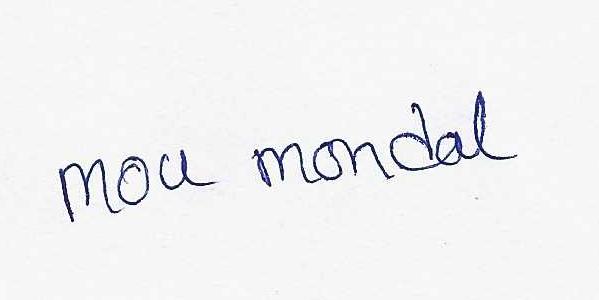 mou mondal